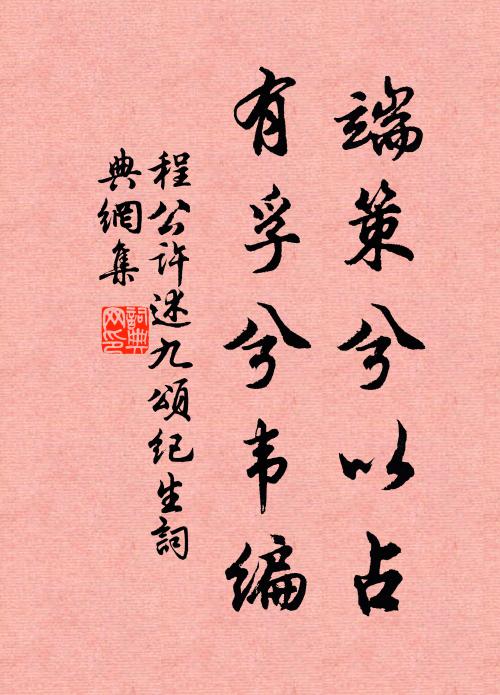 端策兮以占
有孚兮韦编
程公许述九頌纪生詞
典網集
詞典
网印